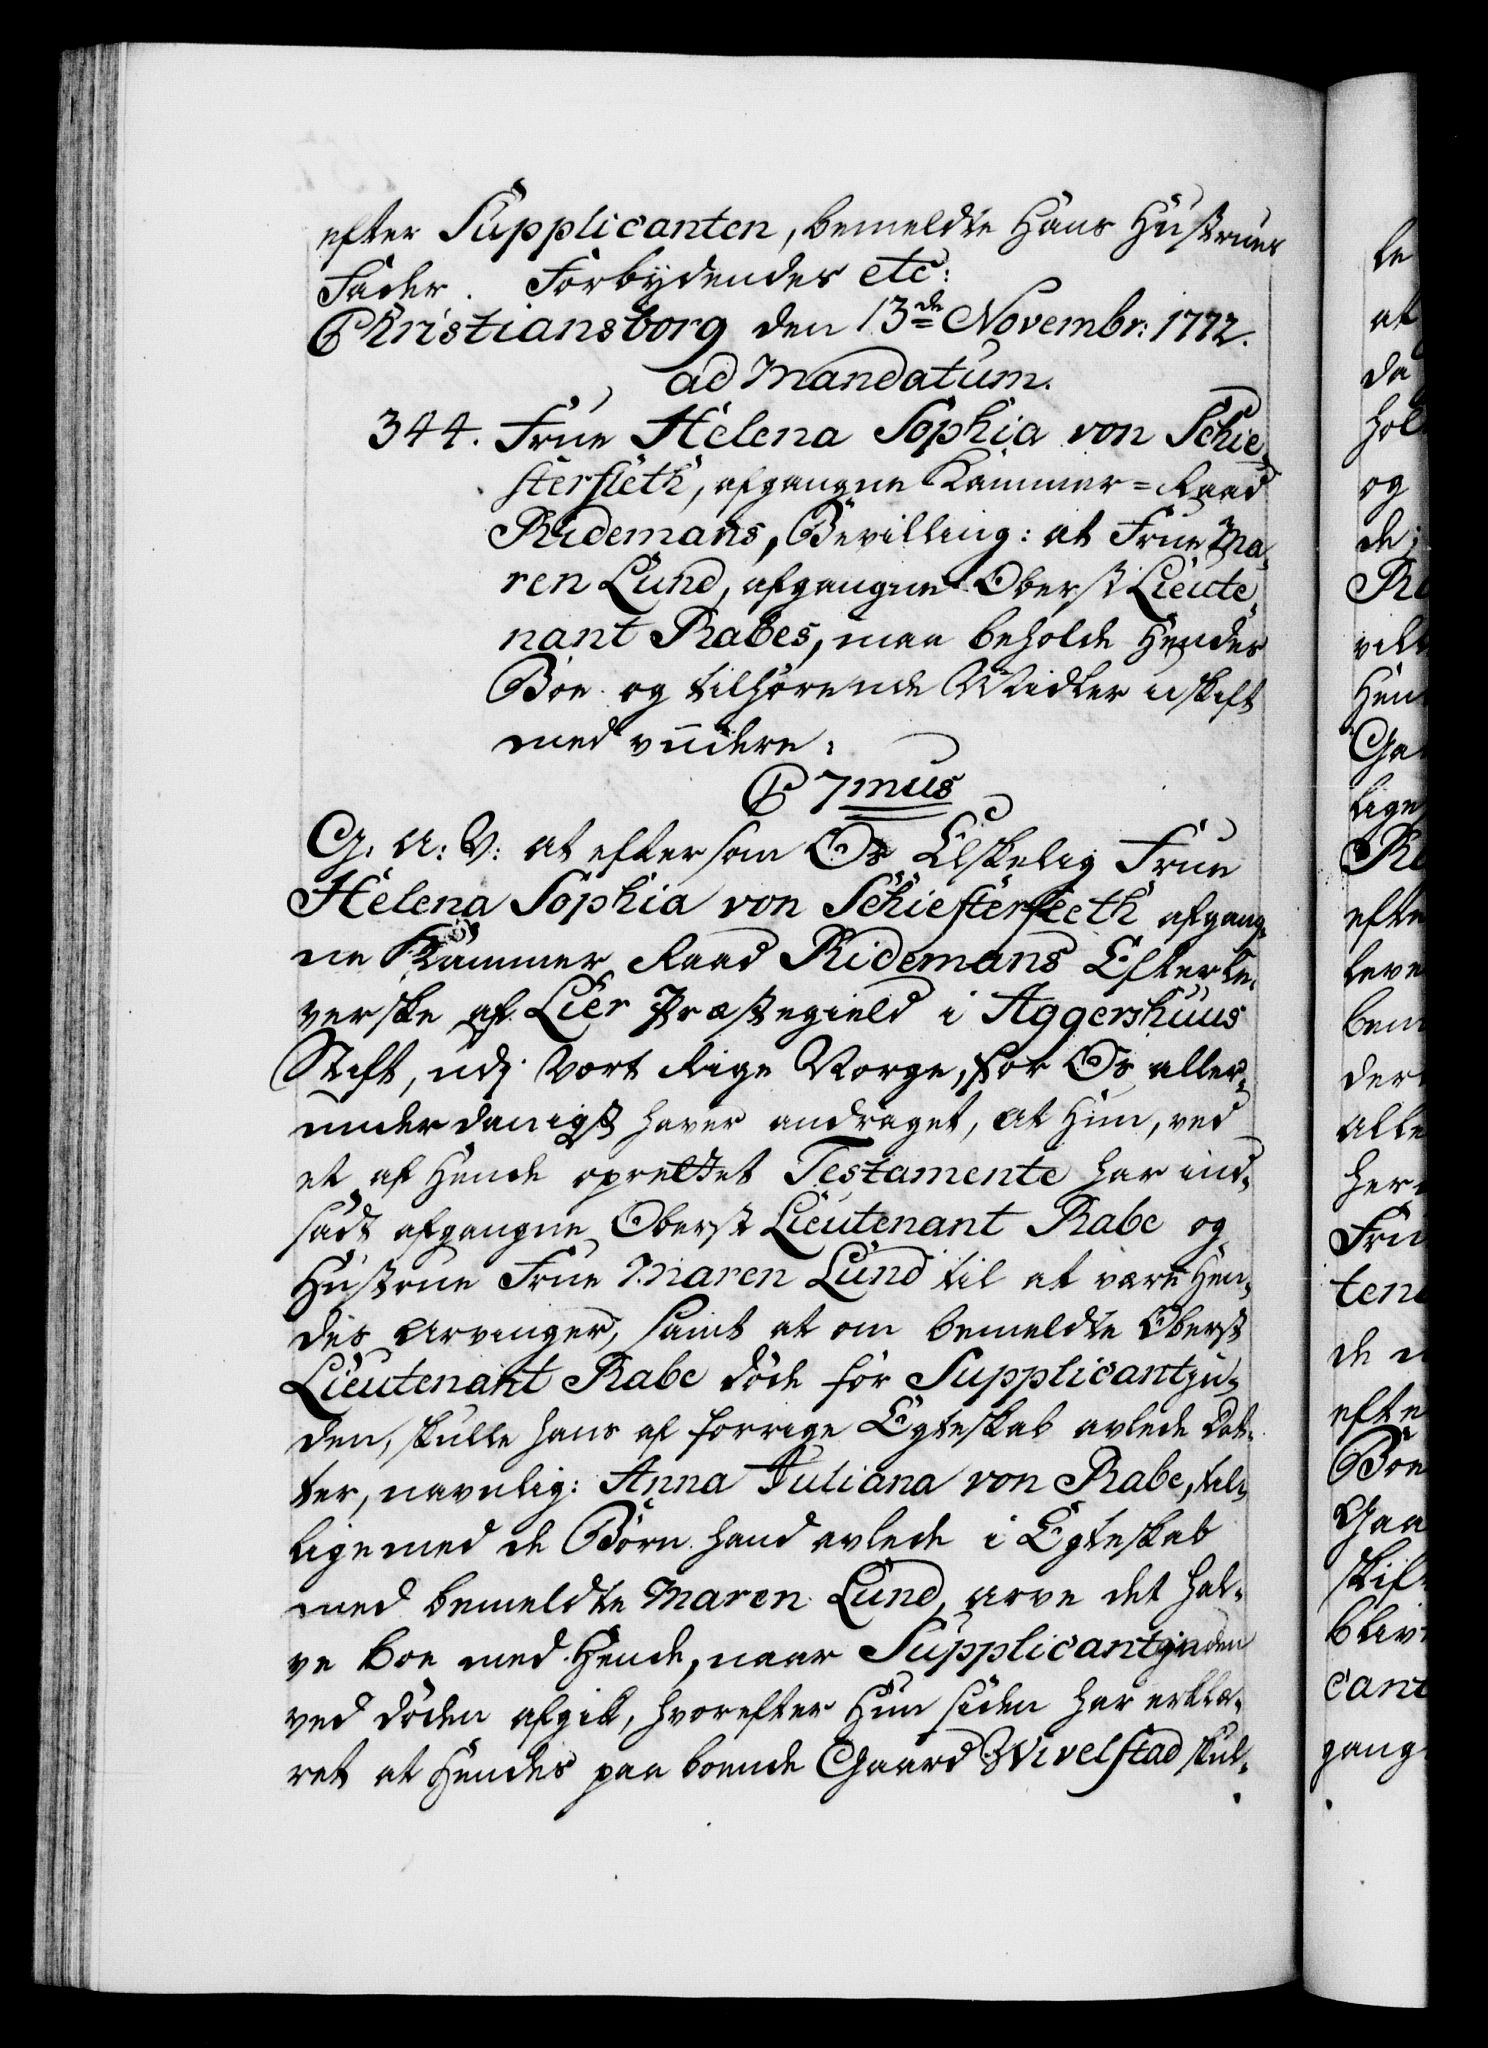 efter Supplicanten, bemeldte Hans Hustrues
Fader. Forbydendes etc:
Christiansborg den 13de Novembr: 1772.
ad Mandatum.
344. Frue Helena Sophia von Schie-
sterfleth, afgangne Kammer-Raad
Ridemans, Bevilling: at Frue Ma-
ren Lund, afgangne Oberst Lieute-
nant Rabes, maa beholde Hendes
Boe og tilhørende Midler uskift
med videre:
C 7mus
G. A: V: at eftersom Os Elskelig Frue
Helena Sophia von Schiesterfleeth afgang-
ne Kammer Raad Ridemans Efterle-
verske af Lier Præstegield i Aggershuus
Stift, udj Vort Rige Norge, for Os aller-
underdanigst haver andraget, at Hun, ved
et af Hende oprettet Testamente har ind-
sadt afgangne Oberst Lieutenant Rabe og
Hustrue Frue Maren Lund til at være Hen-
des Arvinger, samt at om bemeldte Oberst
Lieutenant Rabe døde før Supplicantin-
den, skulle hans af forrige Egteskab avlede Dat-
ter, navnlig: Anna Juliana von Rabe, til-
ligemed de Børn hand avlede i Egteskab
med bemeldte Maren Lund, arve det hal-
ve Boe med Hende, naar Supplicantinden
ved døden afgik, hvorefter Hun siden har erklæ-
ret at Hendes paa boende Gaard Wivelstad skul-
le
at
da
hol
og
de;
vill
Hen
Ga
lige
efte
leve
bem
der
alle
her
Fru
tena
de
efte
Boe
Gaa
skif
bliv
cant
gang